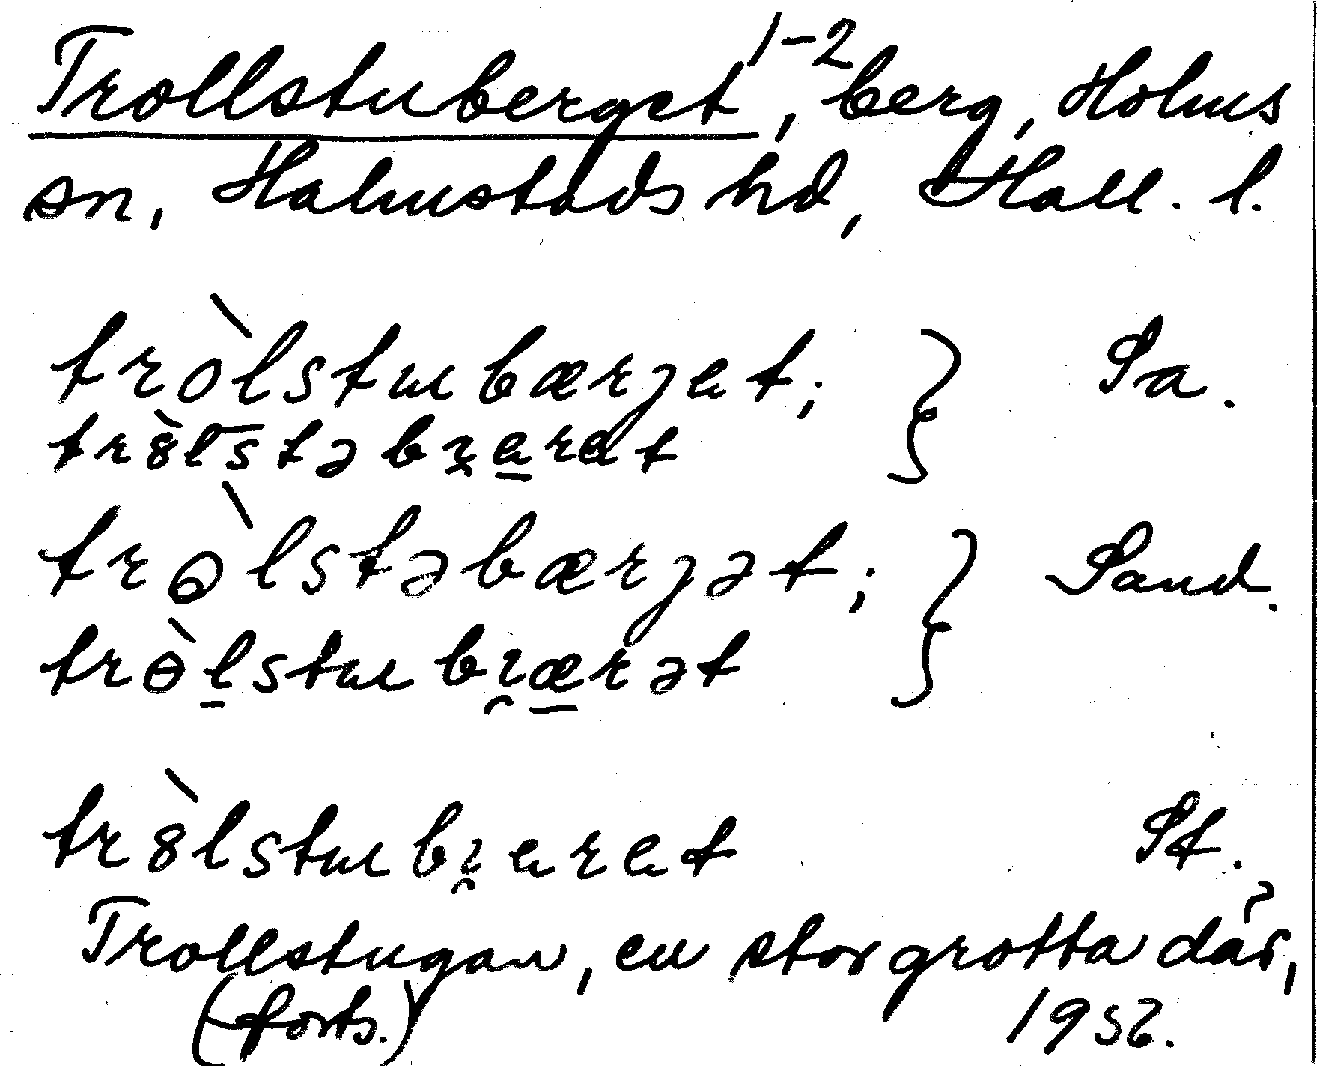 Trollstuberget 1-2, berg, Holms
sn, Halmstads hd, Hall. l.
tròlstubærjet; } Sa.
trȣ̀lstəbı̯eret
trò̵lstəbærjət; } Sand.
trɵ̀lstubı̯ærət
trȣ̀lstubı̯eret St.
Trollstugan, en stor grotta där,
(forts.) 1952.